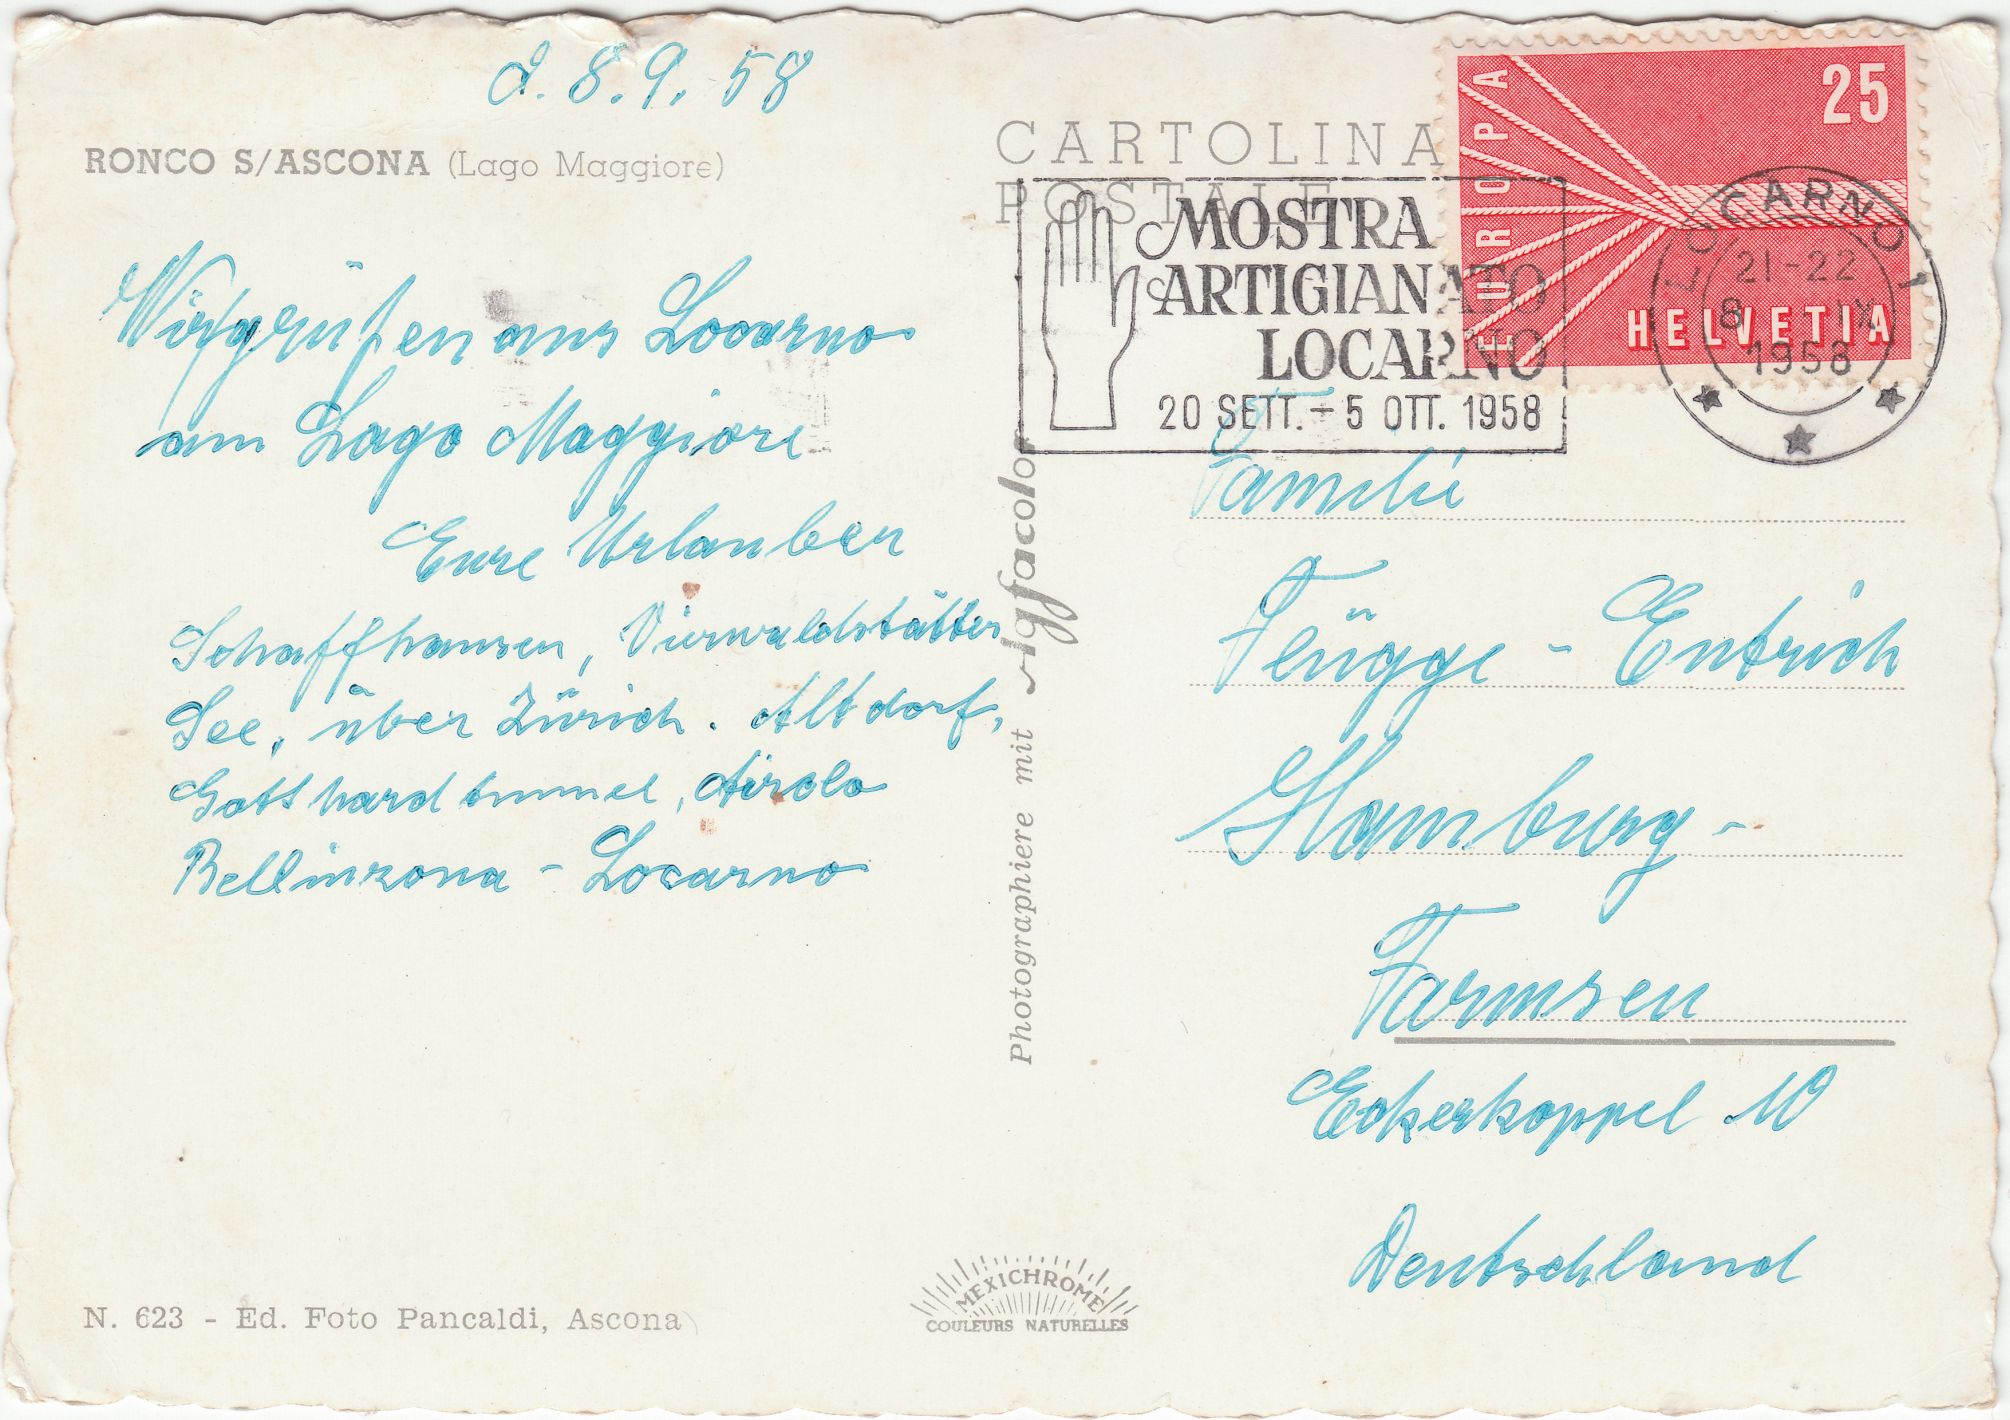 d. 8.9.58
RONCO S/ASCONA (Lago Maggiore)
aus Locarno
am Lago Maggiore
Eure Urlauber
Schaffhausen, Vierwaldstätter
See, über Zürich. Altdorf,
Gotthardtunnel, Airolo
Bellinzona - Locarno
N. 623 - Ed. Foto Pancaldi, Ascona
Photographiere mit Agfacolor
MEXICHROME
COULEURS NATURELLES
CARTOLINA
POSTALE
MOSTRA
ARTIGIANATO
LOCARNO
20 SETT. - 5 OTT. 1958
EUROPA
25
HELVETIA
LOCARNO 1
21-22
8 IX
1958
Familie
Flügge - Entrich
Hamburg -
Farmsen
Eckerkoppel 10
Deutschland